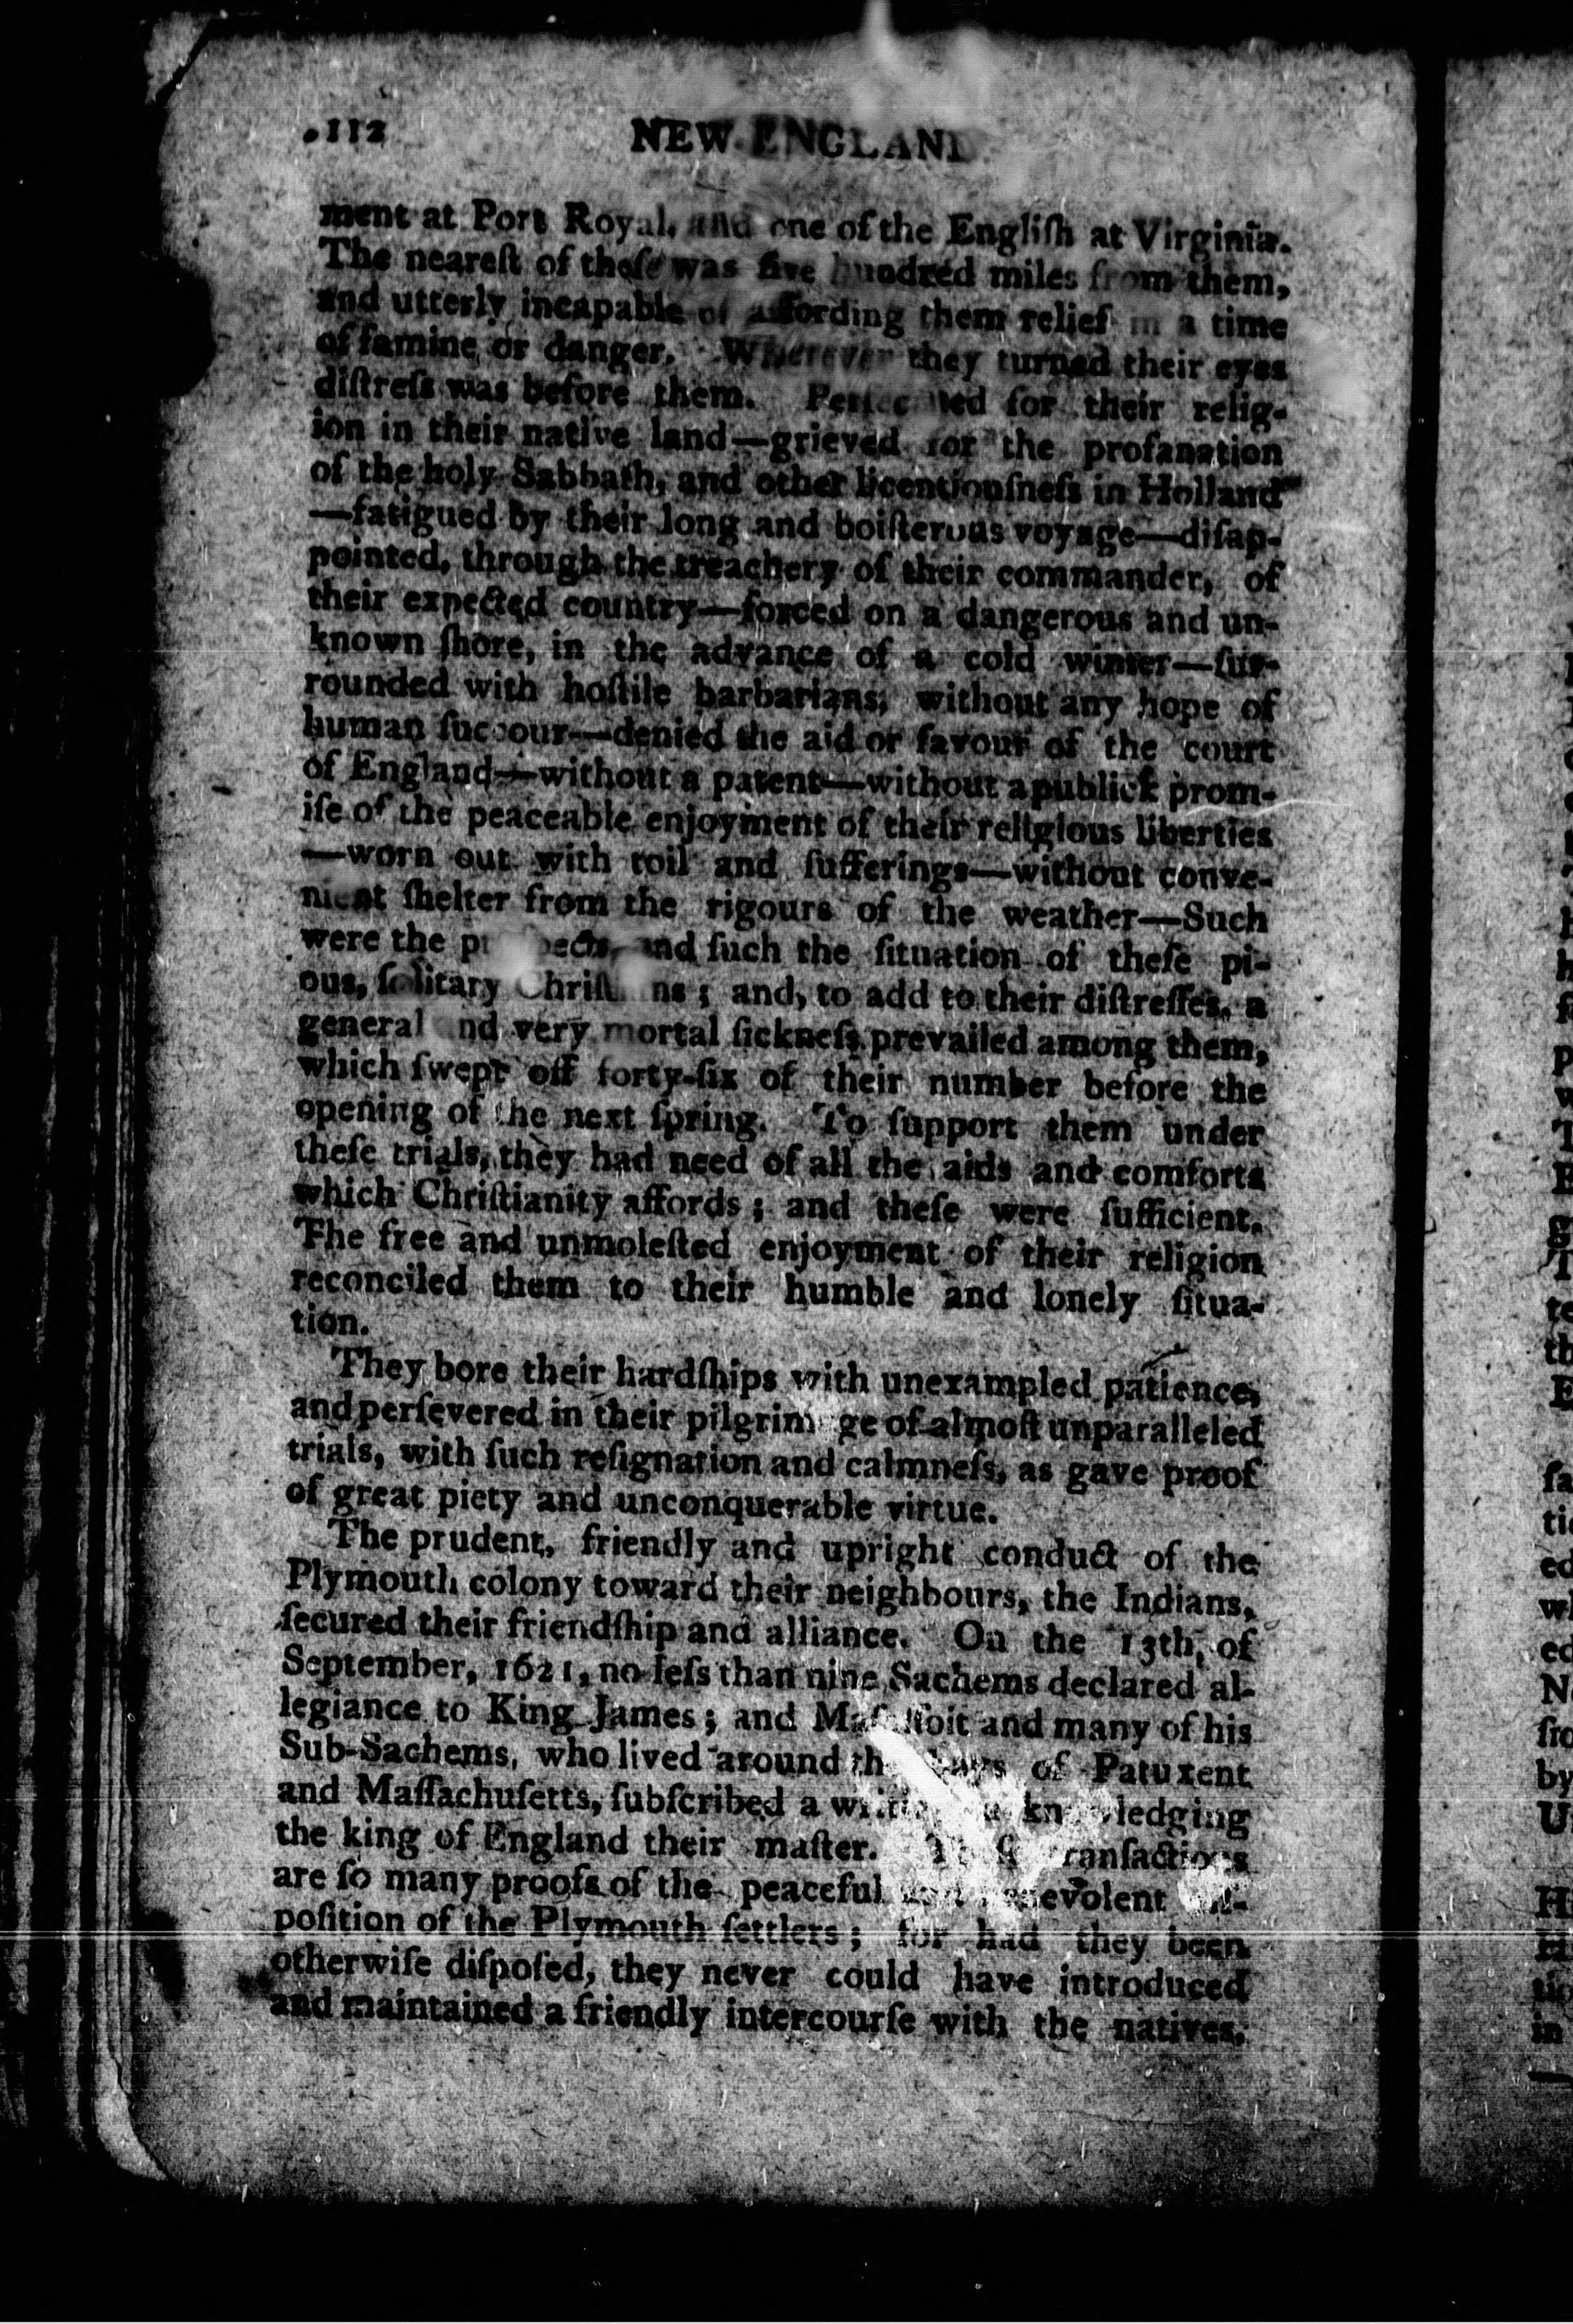 112 NEW ENGLAND
ment at Port Royal, and one of the Engliſh at Virginia.
The neareſt of theſe was five hundred miles from them,
and utterly incapable of affording them relief in a time
of famine or danger. Wherever they turned their eyes
diſtreſs was before them. Perſecuted for their relig-
ion in their native land—grieved for the profanation
of the holy Sabbath, and other licentiouſneſs in Holland
—fatigued by their long and boiſterous voyage—diſap-
pointed, through the treachery of their commander, of
their expected country—forced on a dangerous and un-
known ſhore, in the advance of a cold winter—ſur-
rounded with hoſtile barbarians, without any hope of
human ſuccour—denied the aid or favour of the court
of England—without a patent—without a publick prom-
iſe of the peaceable enjoyment of their religious liberties
—worn out with toil and ſufferings—without conve-
nient ſhelter from the rigours of the weather—Such
were the proſpects, and ſuch the ſituation of theſe pi-
ous, ſolitary Chriſtians; and, to add to their diſtreſſes, a
general and very mortal ſickneſs prevailed among them,
which ſwept off forty-ſix of their number before the
opening of the next ſpring. To ſupport them under
theſe trials, they had need of all the aids and comforts
which Chriſtianity affords; and theſe were ſufficient.
The free and unmoleſted enjoyment of their religion
reconciled them to their humble and lonely ſitua-
tion.
They bore their hardſhips with unexampled patience,
and perſevered in their pilgrimage of almoſt unparalleled
trials, with ſuch reſignation and calmneſs, as gave proof
of great piety and unconquerable virtue.
The prudent, friendly and upright conduct of the
Plymouth colony toward their neighbours, the Indians,
ſecured their friendſhip and alliance. On the 13th, of
September, 1621, no leſs than nine Sachems declared al-
legiance to King James; and Maſaſſoit and many of his
Sub-Sachems, who lived around the bays of Patuxent
and Maſſachuſetts, ſubſcribed a writing acknowledging
the king of England their maſter. Theſe tranſactions
are ſo many proofs of the peaceful and benevolent diſ-
poſition of the Plymouth ſettlers; for had they been
otherwiſe diſpoſed, they never could have introduced
and maintained a friendly intercourſe with the natives.